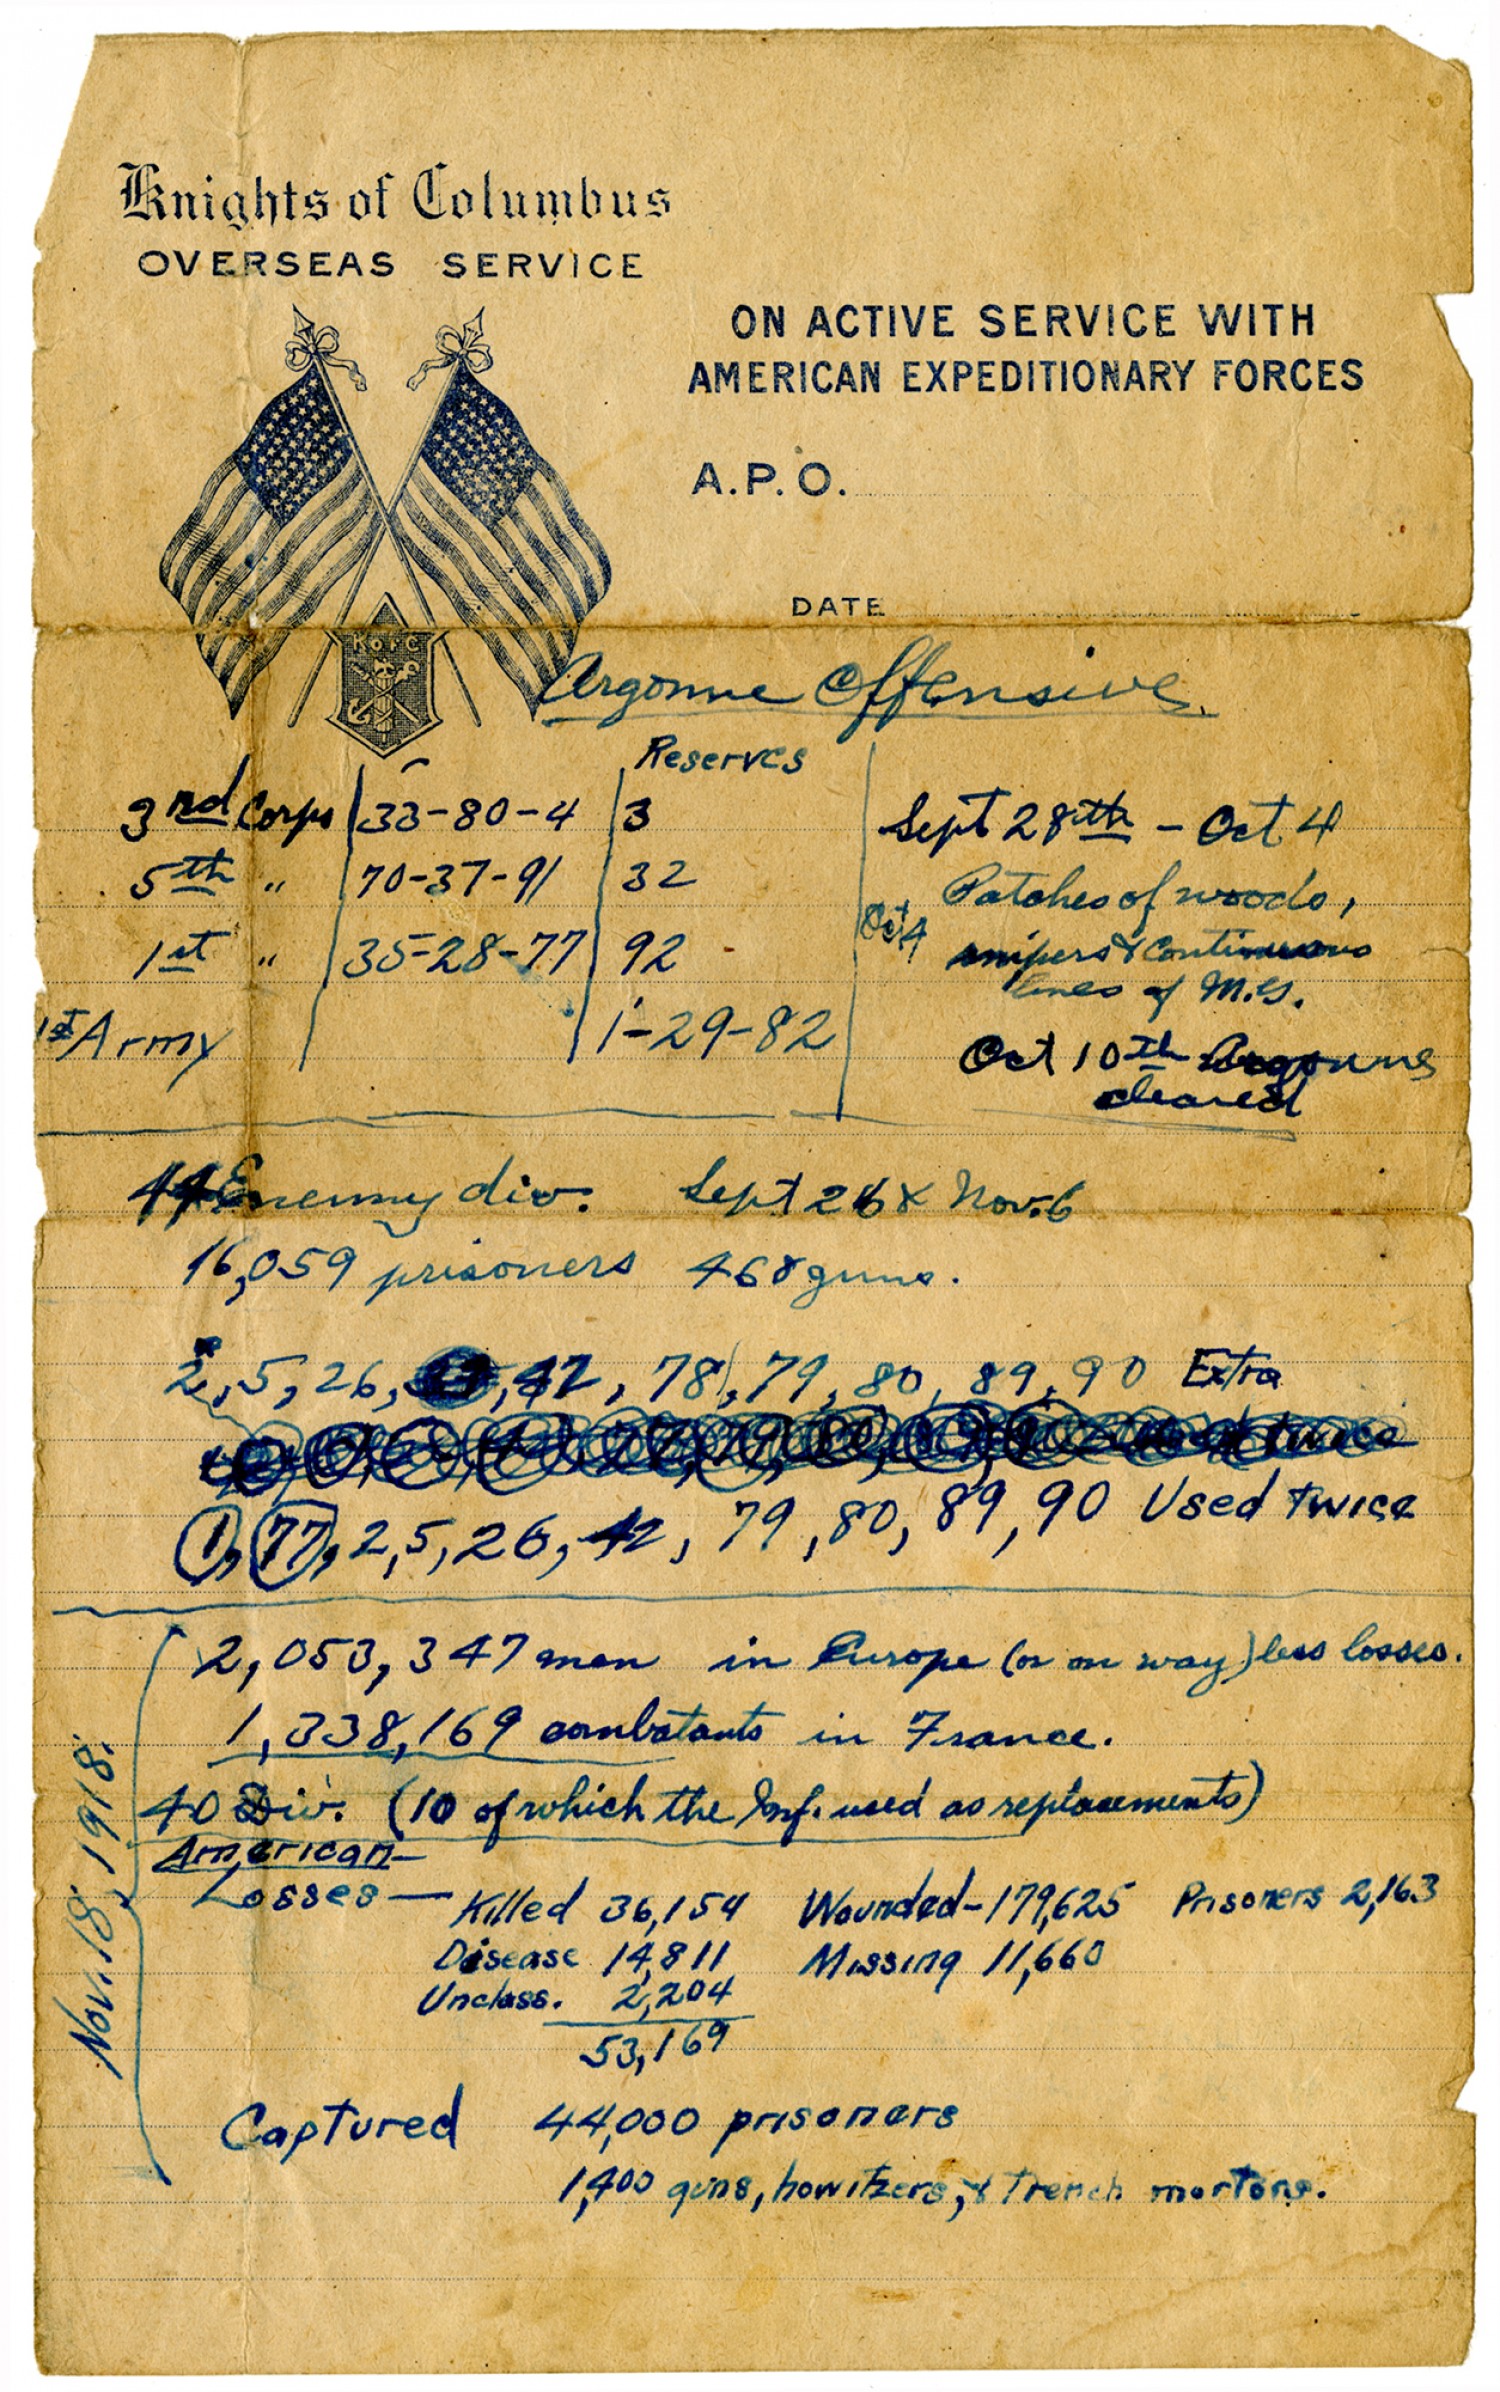 Knights of Columbus
OVERSEAS SERVICE
ON ACTIVE SERVICE WITH
AMERICAN EXPEDITIONARY FORCES
A.P.O.
DATE
K of C
Argonne Offensive
Reserves
3rd Corps 33-80-4 3 Sept 28th - Oct 4
5th " 70-37-91 32 Patches of woods,
1st " 35-28-77 92 Oct 4 snipers & continuous
lines of M.G.
1st Army 1-29-82 Oct 10th Argonne
cleared
44 Enemy div. Sept 26 & Nov. 6
16,059 prisoners 468 guns.
2, 5, 26, 42, 78, 79, 80, 89, 90 Extra
twice
1, 77, 2, 5, 26, 42, 79, 80, 89, 90 Used twice
Nov. 18, 1918.
2,053,347 men in Europe (or on way) less losses.
1,338,169 combatants in France.
40 Div. (10 of which the Inf. used as replacements)
American
Losses — Killed 36,154 Wounded - 179,625 Prisoners 2,163
Disease 14,811 Missing 11,660
Unclass. 2,204
53,169
Captured 44,000 prisoners
1,400 guns, howitzers, & trench mortars.